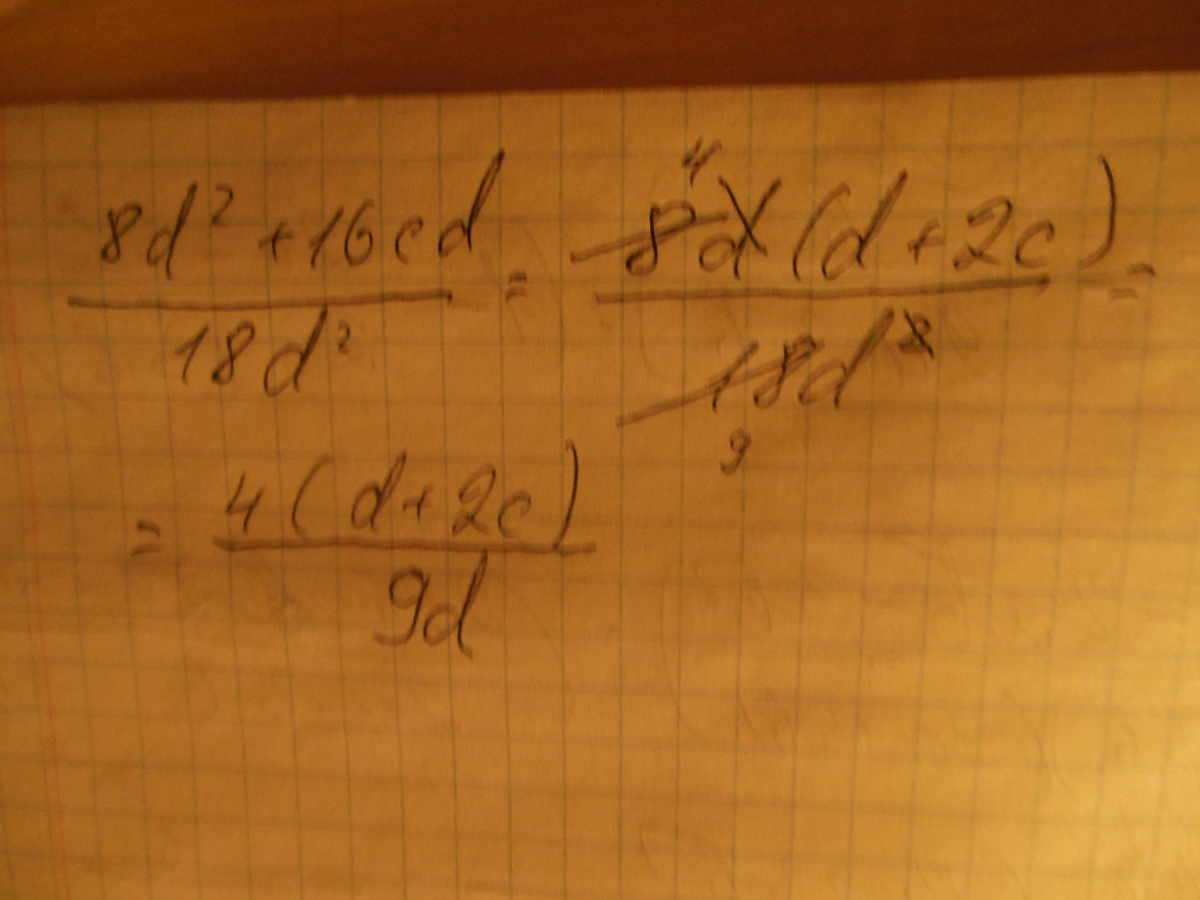 8d² + 16cd / 18d² = 8d (d + 2c) / 18d² =
4
9
= 4 (d + 2c) / 9d